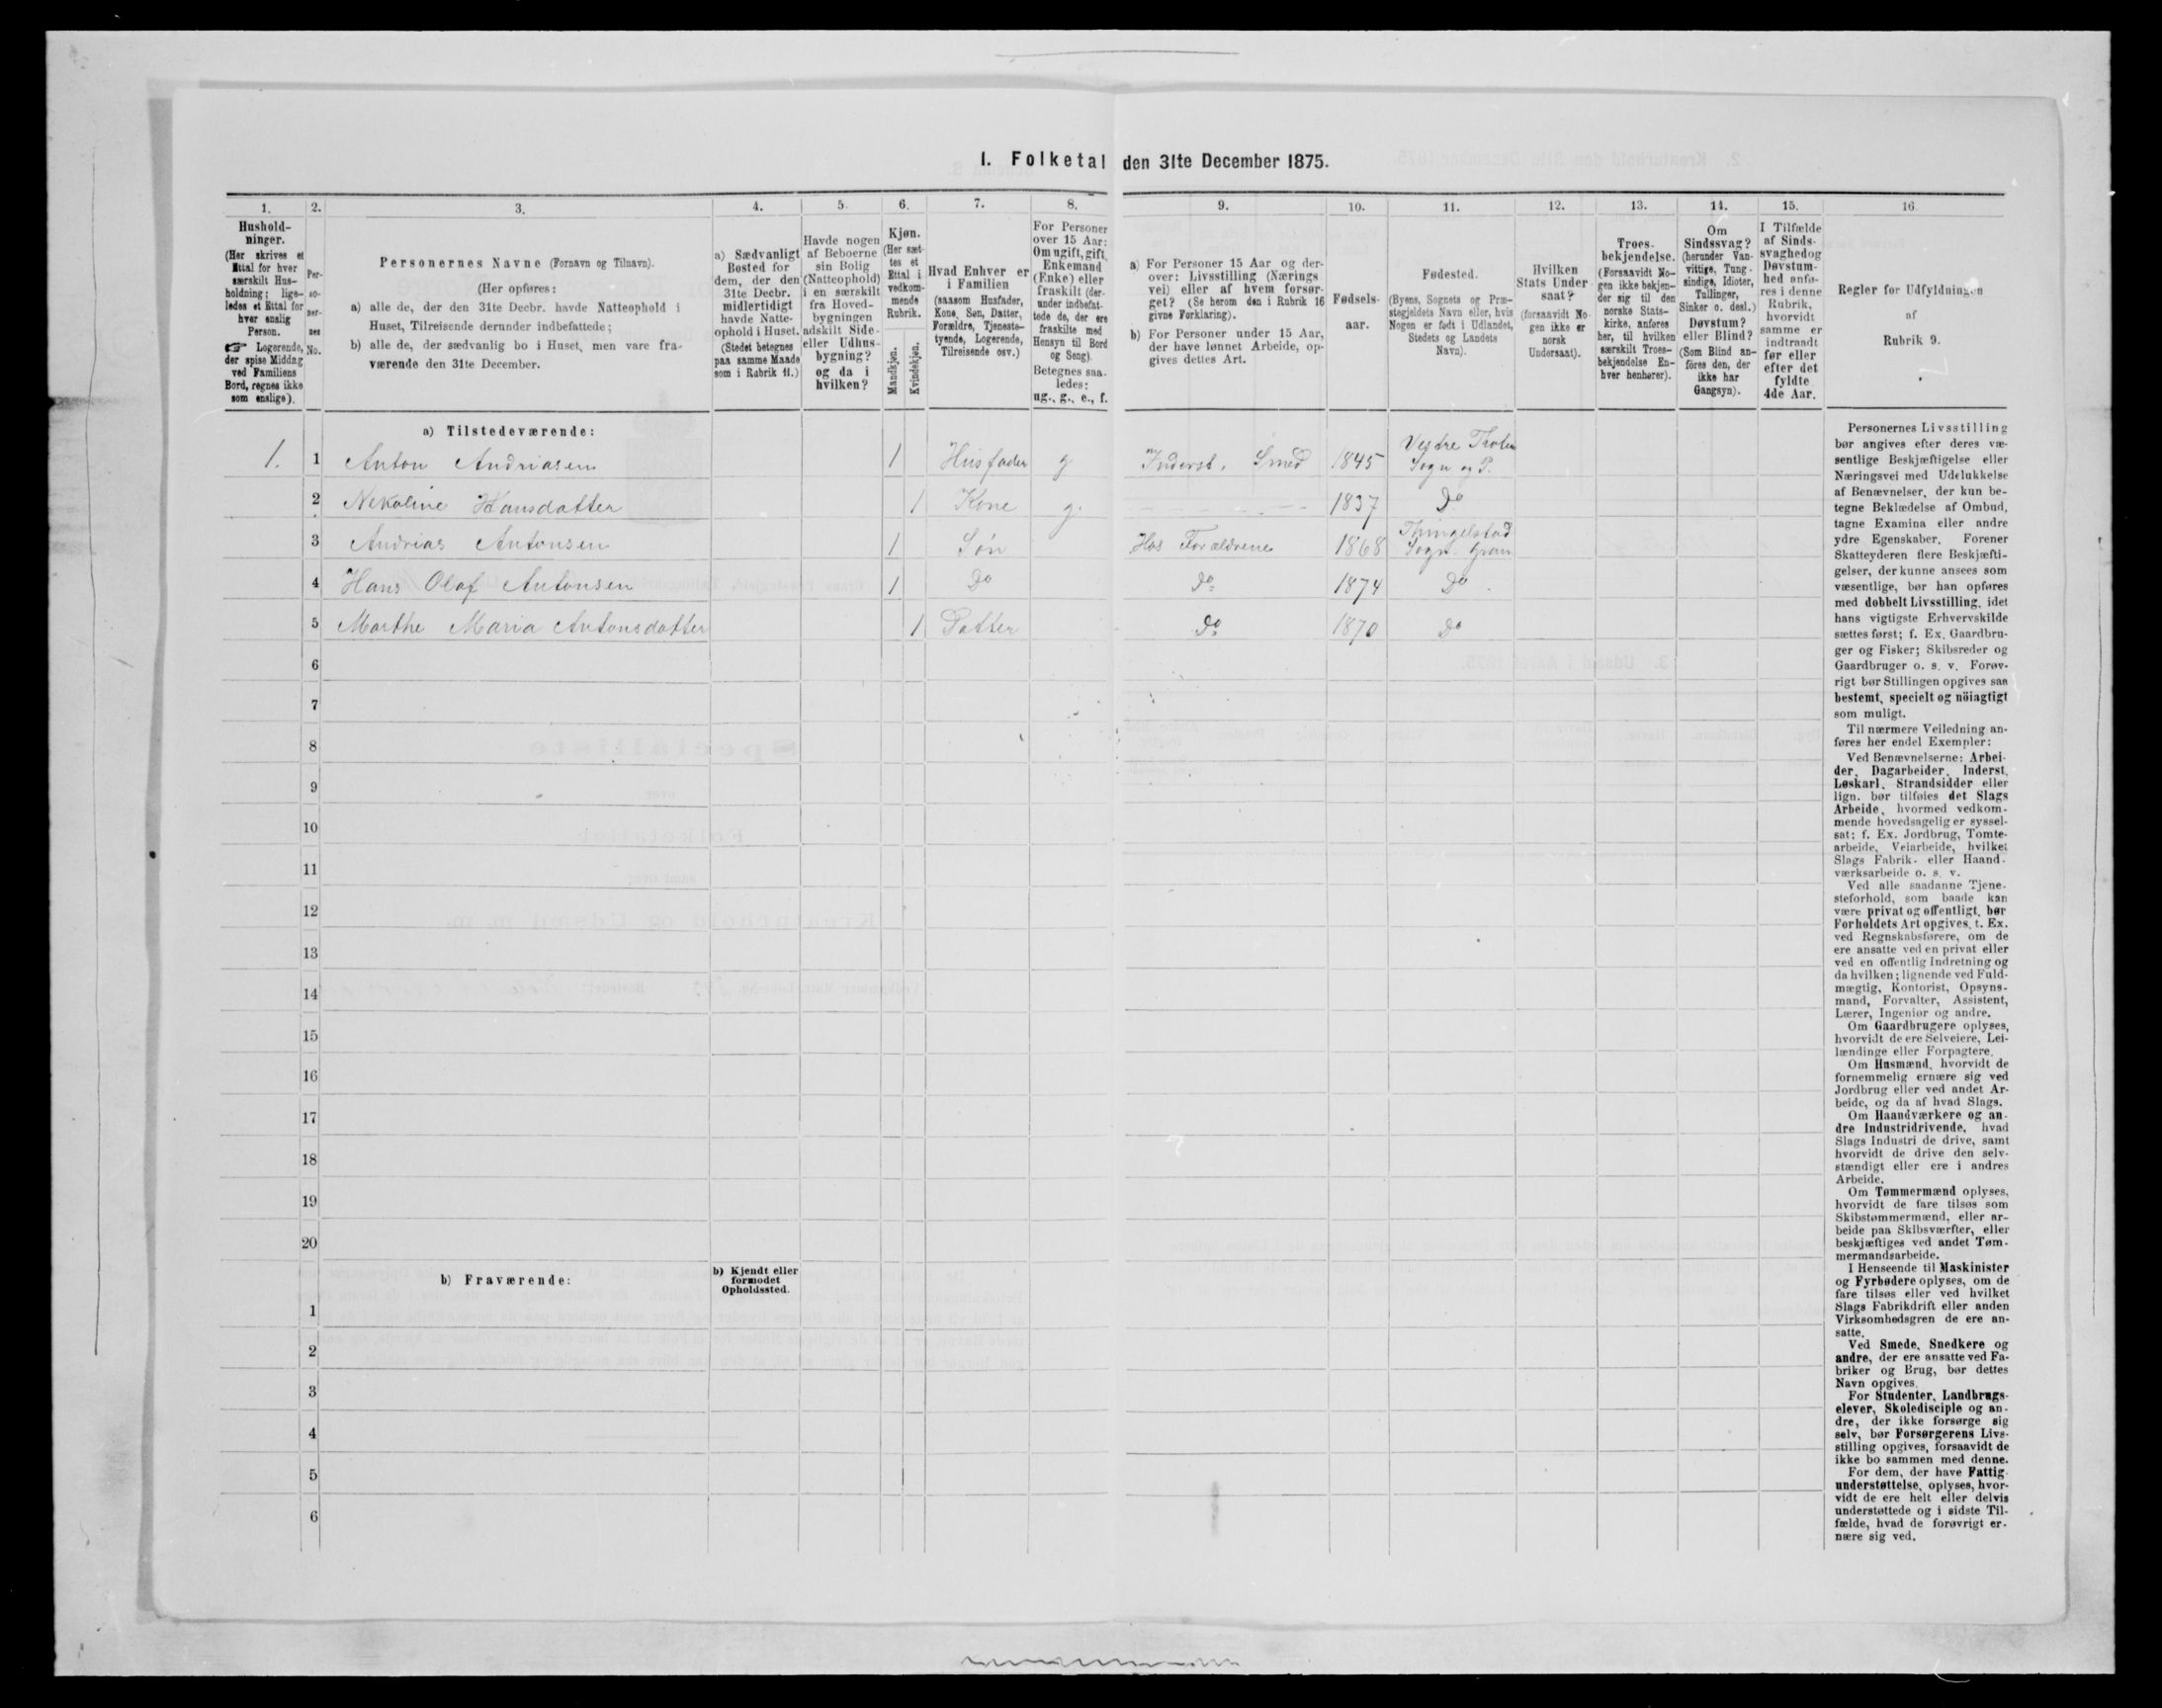 I. Folketal den 31te December 1875.
1. 2. 3. 4. 5. 6. 7. 8. 9. 10. 11. 12. 13. 14. 15. 16.
Hushold-
ninger.
(Her skrives et
Ettal for hver
særskilt Hus-
holdning; lige-
ledes et Ettal for
hver enslig
Person.
☞ Logerende,
der spise Middag
ved Familiens
Bord, regnes ikke
som enslige).
Per-
so-
ner-
nes
No.
Personernes Navne (Fornavn og Tilnavn).
(Her opføres:
a) alle de, der den 31te Decbr. havde Natteophold i
Huset, Tilreisende derunder indbefattede;
b) alle de, der sædvanlig bo i Huset, men vare fra-
værende den 31te December.
a) Sædvanligt
Bosted for
dem, der den
31te Decbr.
midlertidigt
havde Natte-
ophold i Huset.
(Stedet betegnes
paa samme Maade
som i Rubrik 11.)
Havde nogen
af Beboerne
sin Bolig
(Natteophold)
i en særskilt
fra Hoved-
bygningen
adskilt Side-
eller Udhus-
bygning?
og da i
hvilken?
Kjøn.
(Her sæt-
tes et
Ettal i
vedkom-
mende
Rubrik.
Mandkjøn.
Kvindekjøn.
Hvad Enhver er
i Familien
(saasom Husfader,
Kone, Søn, Datter,
Forældre, Tjeneste-
tyende, Logerende,
Tilreisende osv.)
For Personer
over 15 Aar:
Om ugift, gift,
Enkemand
(Enke) eller
fraskilt (der-
under indbefat-
tede de, der ere
fraskilte med
Hensyn til Bord
og Seng).
Betegnes saa-
ledes:
ug., g., e., f.
a) For Personer 15 Aar og der-
over: Livsstilling (Nærings
vei) eller af hvem forsør-
get? (Se herom den i Rubrik 16
givne Forklaring).
b) For Personer under 15 Aar,
der have lønnet Arbeide, op-
gives dettes Art.
Fødsels-
aar.
Fødested.
(Byens, Sognets og Præ-
stegjeldets Navn eller, hvis
Nogen er født i Udlandet,
Stedets og Landets
Navn).
Hvilken
Stats Under
saat?
(forsaavidt No-
gen ikke er
norsk
Undersaat).
Troes-
bekjendelse.
(Forsaavidt No-
gen ikke bekjen-
der sig til den
norske Stats-
kirke, anføres
her, til hvilken
særskilt Troes-
bekjendelse En-
hver henhører).
Om
Sindssvag?
(herunder Van-
vittige, Tung-
sindige, Idioter,
Tullinger,
Sinker o. desl.)
Døvstum?
eller Blind?
(Som Blind an-
føres den, der
ikke har
Gangsyn).
I Tilfælde
af Sinds-
svaghedog
Døvstum-
hed anfø-
res i denne
Rubrik,
hvorvidt
samme er
indtraadt
før eller
efter det
fyldte
4de Aar.
Regler for Udfyldningen
af
Rubrik 9.
a) Tilstedeværende:
1. 1 Anton Andriasen 1 Husfader g Inderst, Smed 1845 Vestre Thoten
Sogn og P.
2 Nekoline Hansdatter 1 Kone g. 1837 Do
3 Andrias Antonsen 1 Søn Hos Forældrene 1868 Thingelstad
Sogn Gran
4 Hans Olaf Antonsen 1 Do Do 1874 Do
5 Marthe Maria Antonsdatter 1 Datter Do 1870 Do
6
7
8
9
10
11
12
13
14
15
16
17
18
19
20
b) Fraværende:
b) Kjendt eller
formodet
Opholdssted.
1
2
3
4
5
6
Personernes Livsstilling
bør angives efter deres væ-
sentlige Beskjæftigelse eller
Næringsvei med Udelukkelse
af Benævnelser, der kun be-
tegne Beklædelse af Ombud,
tagne Examina eller andre
ydre Egenskaber. Forener
Skatteyderen flere Beskjæfti-
gelser, der kunne ansees som
væsentlige, bør han opføres
med dobbelt Livsstilling, idet
hans vigtigste Erhvervskilde
sættes først; f. Ex. Gaardbru-
ger og Fisker; Skibsreder og
Gaardbruger o. s. v. Forøv-
rigt bør Stillingen opgives saa
bestemt, specielt og nöiagtigt
som muligt.
Til nærmere Veiledning an-
føres her endel Exempler:
Ved Benævnelserne: Arbei-
der, Dagarbeider, Inderst,
Løskarl, Strandsidder eller
lign. bør tilføies det Slags
Arbeide, hvormed vedkom-
mende hovedsagelig er syssel-
sat; f. Ex. Jordbrug, Tomte-
arbeide, Veiarbeide, hvilket
Slags Fabrik- eller Haand-
værksarbeide o. s. v.
Ved alle saadanne Tjene-
steforhold, som baade kan
være privat og offentligt, bør
Forholdets Art opgives, t. Ex.
ved Regnskabsførere, om de
ere ansatte ved en privat eller
ved en offentlig Indretning og
da hvilken; lignende ved Fuld-
mægtig, Kontorist, Opsyns-
mand, Forvalter, Assistent,
Lærer, Ingeniør og andre.
Om Gaardbrugere oplyses,
hvorvidt de ere Selveiere, Lei-
lændinge eller Forpagtere.
Om Husmænd, hvorvidt de
fornemmelig ernære sig ved
Jordbrug eller ved andet Ar-
beide, og da af hvad Slags.
Om Haandværkere og an-
dre Industridrivende, hvad
Slags Industri de drive, samt
hvorvidt de drive den selv-
stændigt eller ere i andres
Arbeide.
Om Tømmermænd oplyses,
hvorvidt de fare tilsøs som
Skibstømmermænd, eller ar-
beide paa Skibsværfter, eller
beskjæftiges ved andet Tøm-
mermandsarbeide.
I Henseende til Maskinister
og Fyrbødere oplyses, om de
fare tilsøs eller ved hvilket
Slags Fabrikdrift eller anden
Virksomhedsgren de ere an-
satte.
Ved Smede, Snedkere og
andre, der ere ansatte ved Fa-
briker og Brug, bør dettes
Navn opgives.
For Studenter, Landbrugs-
elever, Skoledisciple og an-
dre, der ikke forsørge sig
selv, bør Forsørgerens Livs-
stilling opgives, forsaavidt de
ikke bo sammen med denne.
For dem, der have Fattig-
understøttelse, oplyses, hvor-
vidt de ere helt eller delvis
understøttede og i sidste Til-
fælde, hvad de forøvrigt er-
nære sig ved.